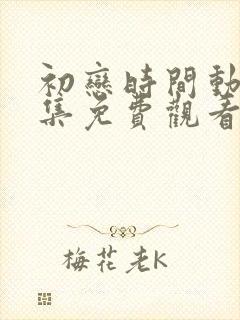 初戀時間動
集免費觀看
梅花老K